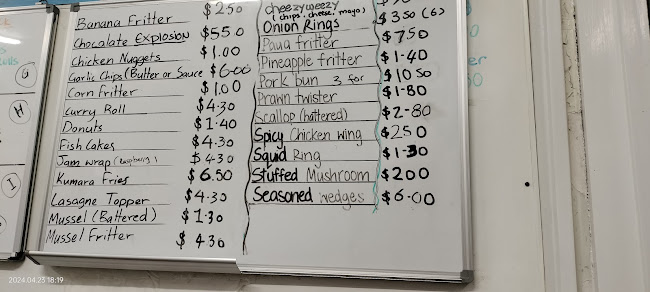 Banana Fritter $2.50
Chocolate Explosion $5.50
Chicken Nuggets $1.00
Garlic Chips (Butter or Sauce $6.00
Corn fritter $1.00
Curry Roll $4.30
Donuts $1.40
Fish Cakes $4.30
Jam wrap (raspberry) $4.30
Kumara Fries $6.50
Lasagne Topper $4.30
Mussel (Battered) $1.30
Mussel Fritter $4.30
cheezyweezy
(chips, cheese, mayo)
Onion Rings $3.50 (6)
Paua fritter $7.50
Pineapple fritter $1.40
Pork bun 3 for $10.50
Prawn twister $1.80
Scallop (battered) $2.80
Spicy Chicken wing $2.50
Squid Ring $1.30
Stuffed Mushroom $2.00
Seasoned wedges $6.00
G
H
I
2024.04.25 18:19